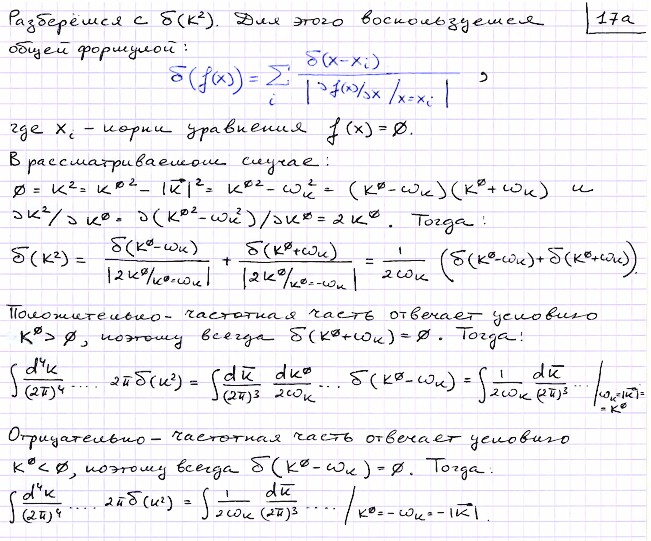 Разберёмся с δ(K²). Для этого воспользуемся 17а
общей формулой:
δ(f(x)) = Σ_i δ(x-x_i) / |∂f(x)/∂x /_{x=x_i}| ,
где x_i – корни уравнения f(x)=0.
В рассматриваемом случае:
0 = K² = K⁰² - |K⃗|² = K⁰² - ω_K² = (K⁰-ω_K)(K⁰+ω_K) и
∂K²/∂K⁰ = ∂(K⁰²-ω_K²)/∂K⁰ = 2K⁰. Тогда:
δ(K²) = δ(K⁰-ω_K) / |2K⁰/_{K⁰=ω_K}| + δ(K⁰+ω_K) / |2K⁰/_{K⁰=-ω_K}| = 1/(2ω_K) (δ(K⁰-ω_K)+δ(K⁰+ω_K)).
Положительно-частотная часть отвечает условию
K⁰>0, поэтому всегда δ(K⁰+ω_K)=0. Тогда:
∫ d⁴K/(2π)⁴ .... 2π δ(K²) = ∫ dK̄/(2π)³ dK⁰/2ω_K ... δ(K⁰-ω_K) = ∫ 1/2ω_K dK̄/(2π)³ ... /_{ω_K=|K⃗|=K⁰}
Отрицательно-частотная часть отвечает условию
K⁰<0, поэтому всегда δ(K⁰-ω_K)=0. Тогда:
∫ d⁴K/(2π)⁴ .... 2π δ(K²) = ∫ 1/2ω_K dK̄/(2π)³ .... /_{K⁰=-ω_K=-|K⃗|}.